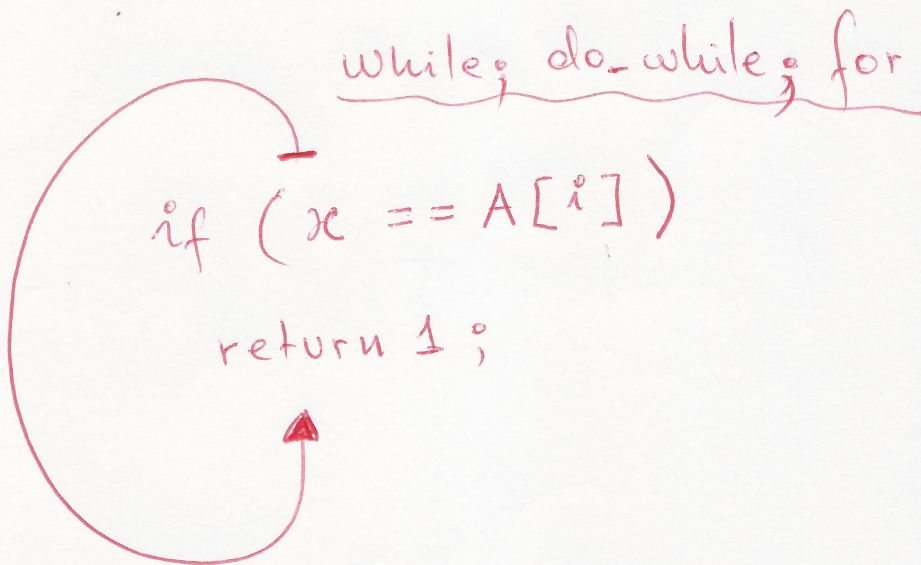 while; do_while; for
if (x == A[i])
return 1;